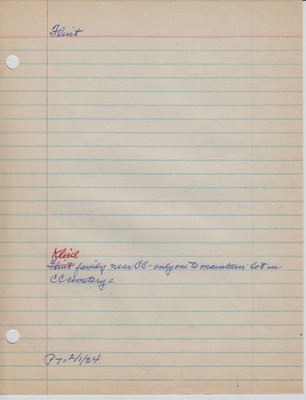 Flint
Kline
Flint family near CC - only one to maintain lot in
CC cemetery =
P T. 2/1/34